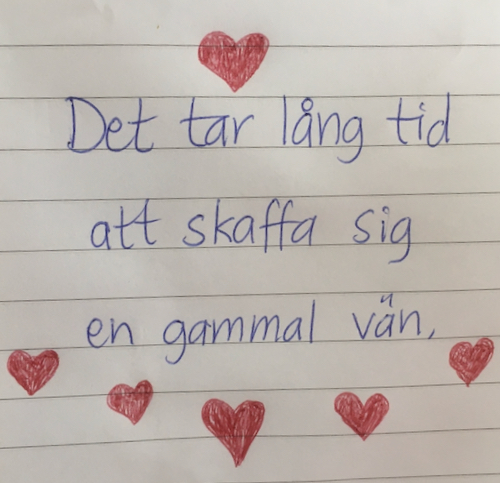 Det tar lång tid
att skaffa sig
en gammal vän,